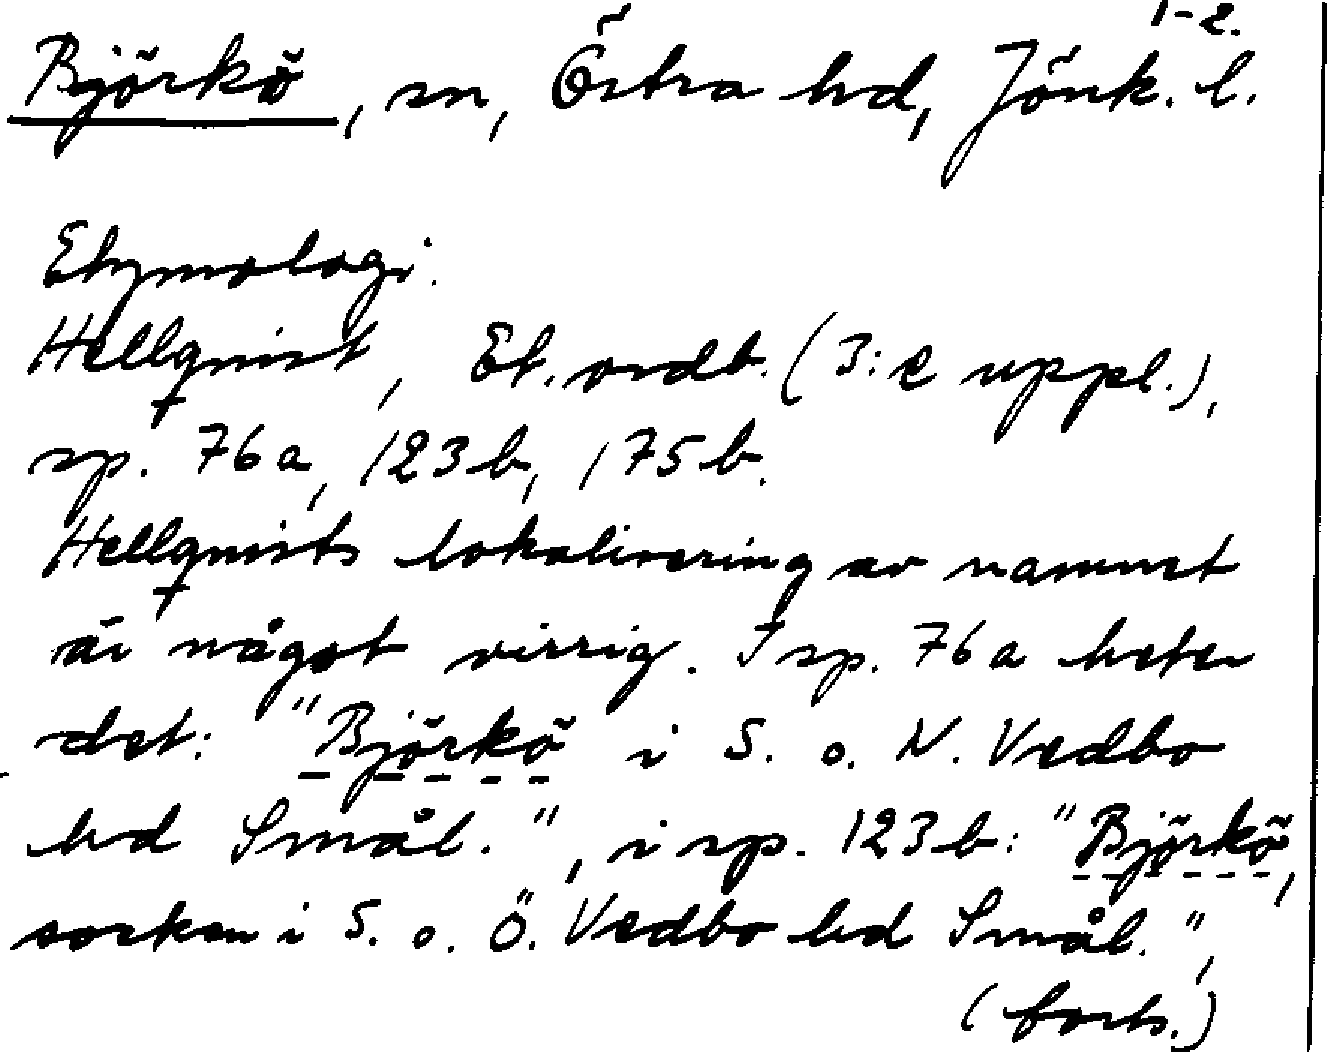 1-2.
Björkö, sn, Östra hd, Jönk. l.
Etymologi.
Hellqvist, Et. ordb. (3:e uppl.),
sp. 76a, 123b, 175b.
Hellqvists lokalisering av namnet
är något virrig. I sp. 76a heter
det: "Björkö i S. o. N. Vedbo
hd Smål.", i sp. 123b: "Björkö,
socken i S. o. Ö. Vedbo hd Smål.",
(forts.)